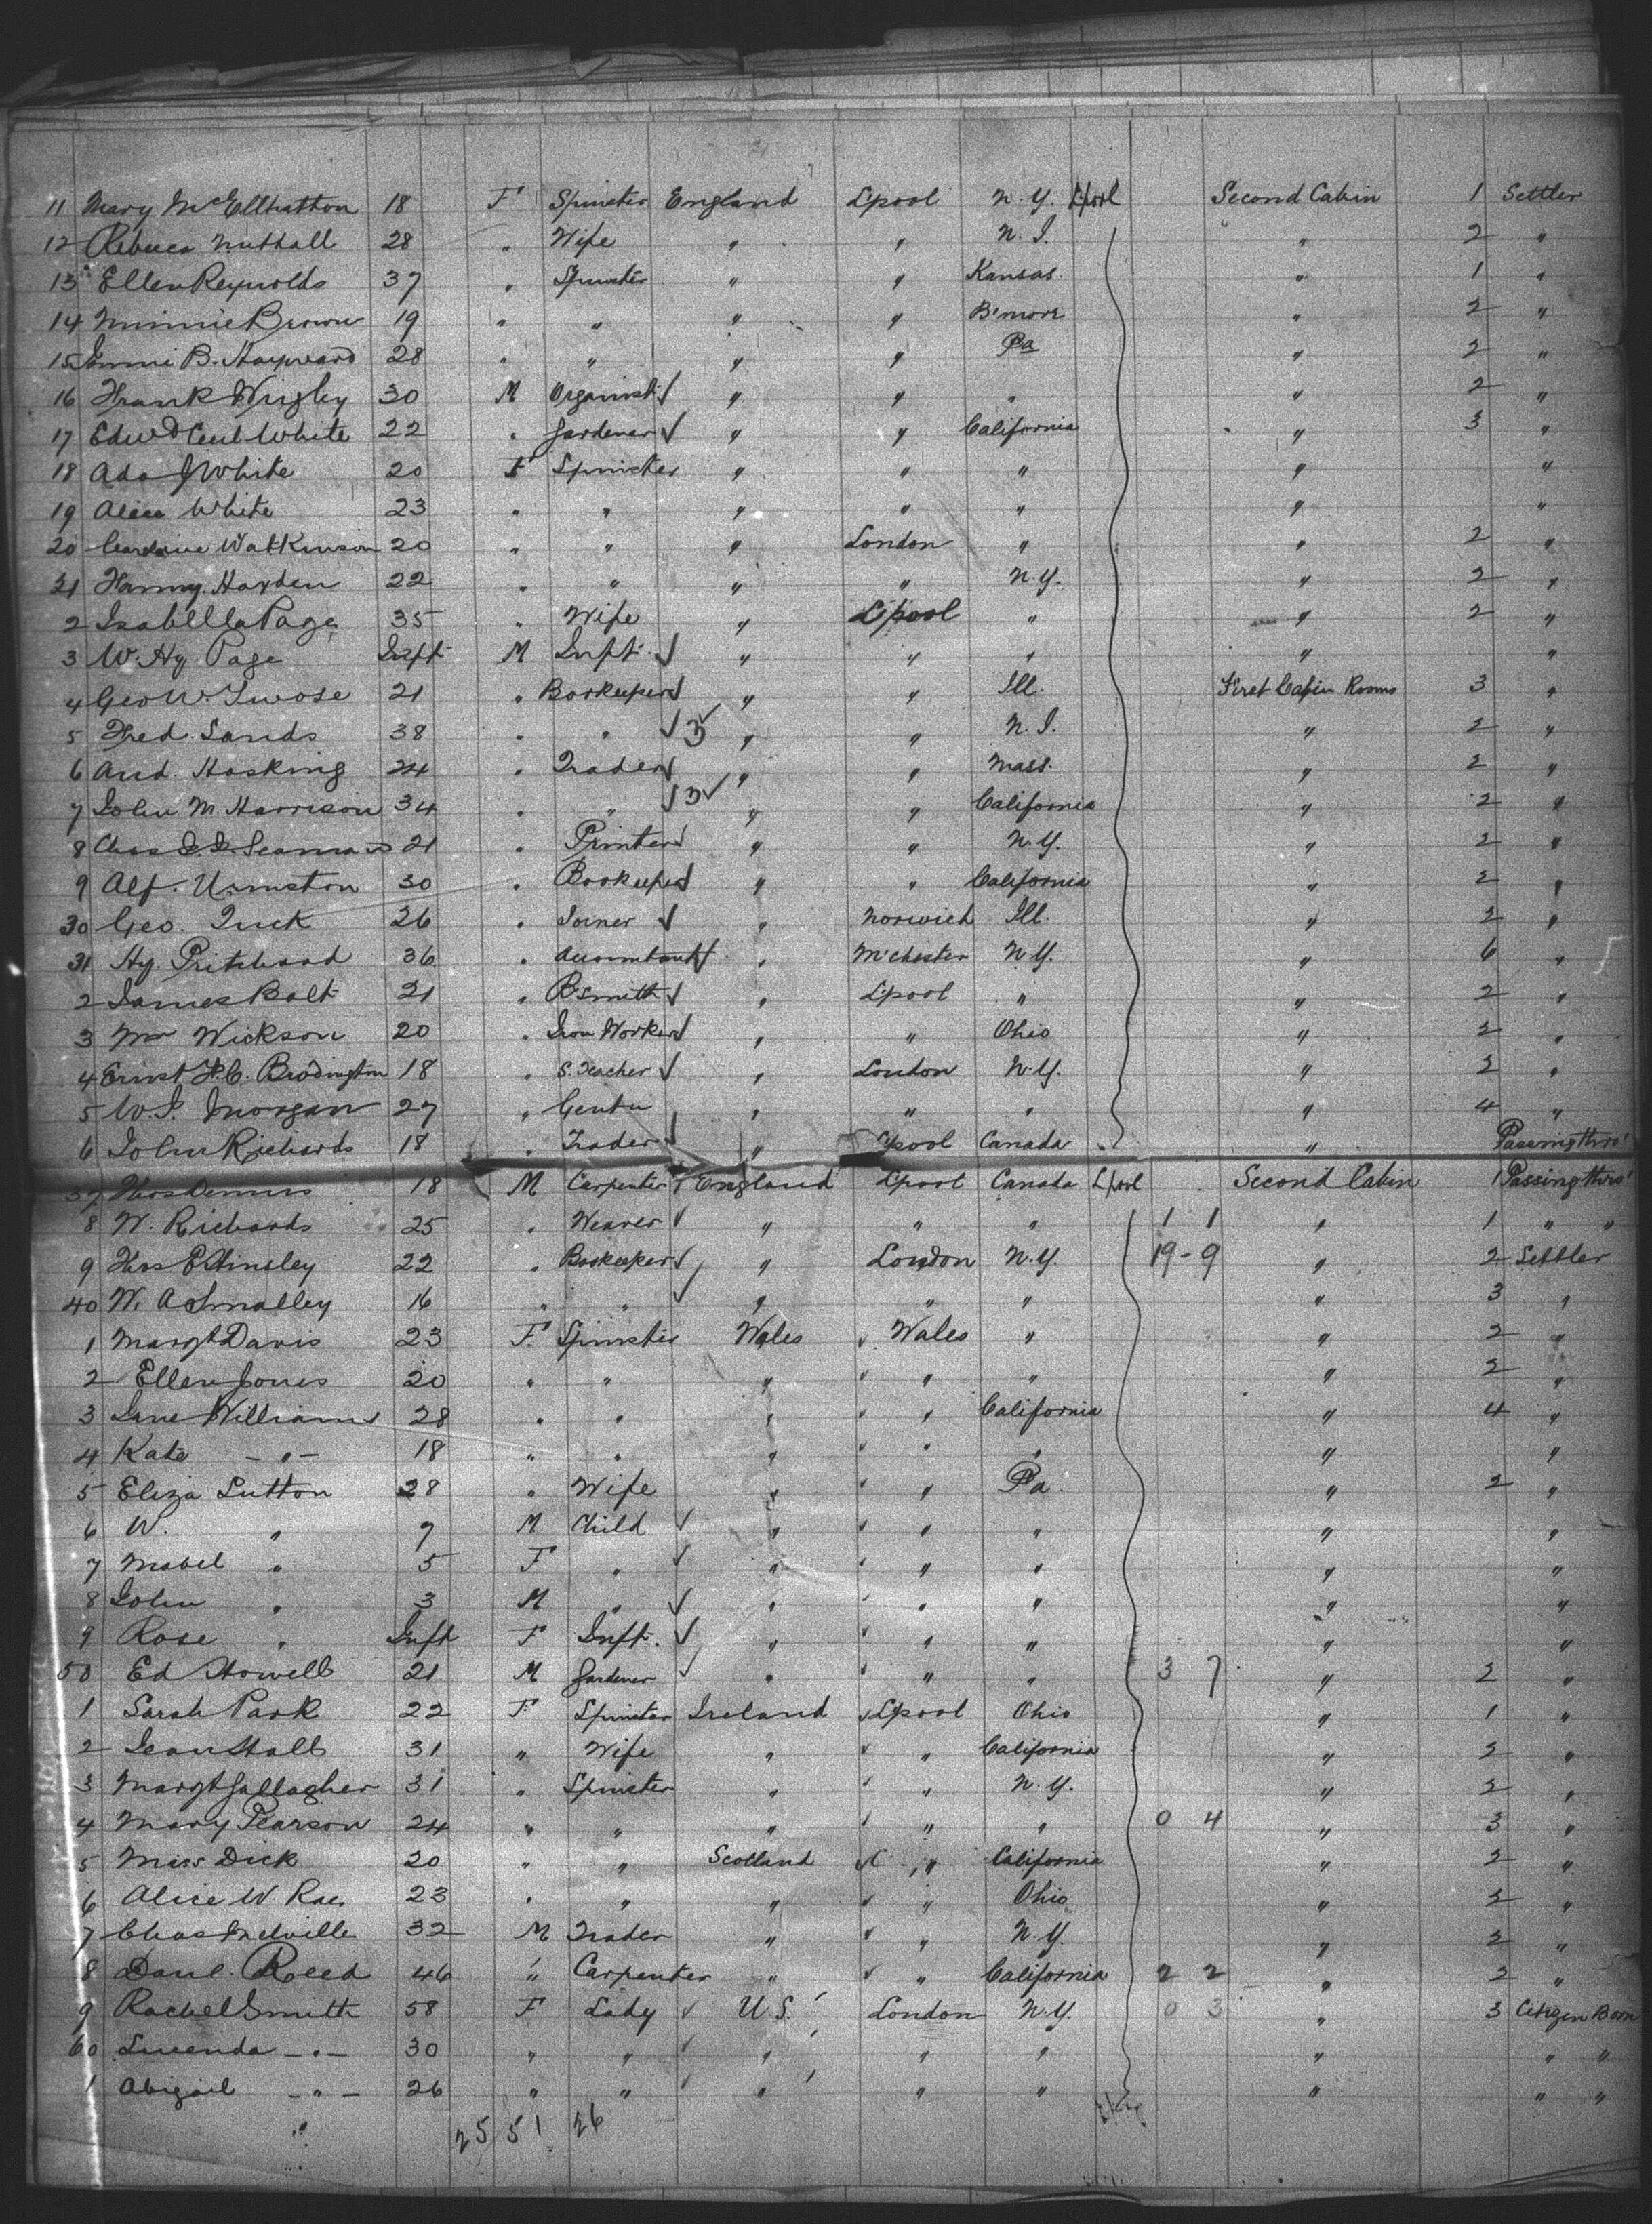 11 Mary McEllhatton 18 F Spinster England Lpool N.Y. Lpool Second Cabin 1 Settler
12 Rebecca Nuthall 28 " Wife " " N.J. " 2 "
13 Ellen Reynolds 37 " Spinster " " Kansas " 1 "
14 Minnie Brown 19 " " " " B'more " 2 "
15 B. Hayward 28 " " " " Pa " 2 "
16 Frank Wrigley 30 M Organist " " " " 2 "
17 Edwd Cecil White 22 " Gardener " " California " 3 "
18 Ada J White 20 F Spinster " " " " "
19 Alice White 23 " " " " " " "
20 Caroline Watkinson 20 " " " London " " 2 "
21 Fanny Harden 22 " " " " N.Y. " 2 "
2 Isabella Page 35 " Wife " Lpool " " 2 "
3 W. Hy. Page Inft M Inft. " " " " "
4 Geo W. Twose 21 " Bookeeper " " Ill. First Cabin Rooms 3 "
5 Fred. Sands 38 " " 3 " " N.J. " 2 "
6 And. Hosking 24 " Trader " " Mass. " 2 "
7 John M. Harrison 34 " " 3 " " California " 2 "
8 Chas Seaman 21 " Printer " " N.Y. " 2 "
9 Alf. Urmston 30 " Bookeeper " " California " 2 "
30 Geo. Tuck 26 " Joiner " Norwich Ill. " 2 "
31 Hy. Pritchard 36 " Accountant " M'chester N.Y. " 6 "
2 James Bolt 21 " B'smith " Lpool " " 2 "
3 Mr Wickson 20 " Iron Worker " " Ohio " 2 "
4 Ernst F.C. Brodington 18 " S. Teacher " London N.Y. " 2 "
5 W.J. Morgan 27 " Gentn " " " " 4 "
6 John Richards 18 " Trader " Lpool Canada " Passing thro'
37 Thos Dennis 18 M Carpenter England Lpool Canada Lpool Second Cabin 1 Passing thro'
8 W. Richards 25 " Weaver " " " 1 1 " 1 " "
9 Thos E Hinsley 22 " Bookeeper " London N.Y. 19-9 " 2 Settler
40 W. A Smalley 16 " " " " " " 3 "
1 Margt Davis 23 F. Spinster Wales Wales " " 2 "
2 Ellen Jones 20 " " " " " " 2 "
3 Jane Williams 28 " " " " California " 4 "
4 Kate -"- 18 " " " " " " "
5 Eliza Sutton 28 " Wife " " Pa. " 2 "
6 W. " 7 M Child " " " " "
7 Mabel " 5 F " " " " " "
8 John " 3 M " " " " " "
9 Rose " Inft F Inft. " " " " "
50 Ed Howell 21 M Gardener " " " 3 7 " 2 "
1 Sarah Park 22 F Spinster Ireland Lpool Ohio " 1 "
2 Jean Hall 31 " Wife " " California " 2 "
3 Margt Gallagher 31 " Spinster " " N.Y. " 2 "
4 Mary Pearson 24 " " " " " 0 4 " 3 "
5 Miss Dick 20 " " Scotland " California " 2 "
6 Alice W Rae 23 " " " " Ohio " 2 "
7 Chas Melville 32 M Trader " " N.Y. " 2 "
8 Danl. Reed 46 " Carpenter " " California 2 2 " 2 "
9 Rachel Smith 58 F Lady U.S. London N.Y. 0 3 " 3 Citizen Born
60 Lucenda -"- 30 " " " " " " " "
1 Abigail -"- 26 " " " " " " " "
" 25 51 26